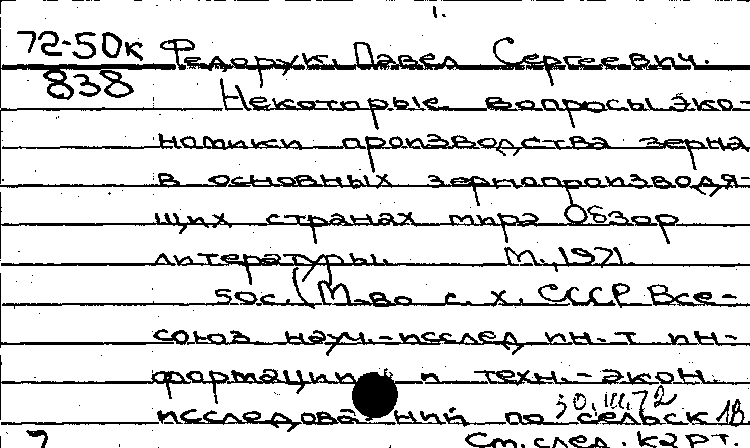 1.
72-50к Федорук, Павел Сергеевич.
838
Некоторые вопросы эко-
номики производства зерна
в основных зернопроизводя-
щих странах мира Обзор
литературы. М., 1971.
50с. (М-во с. х. СССР Все-
союз. науч.-исслед ин-т ин-
формации и техн.-экон.
30.III.72
исследований по сельск 18
См. след. карт.